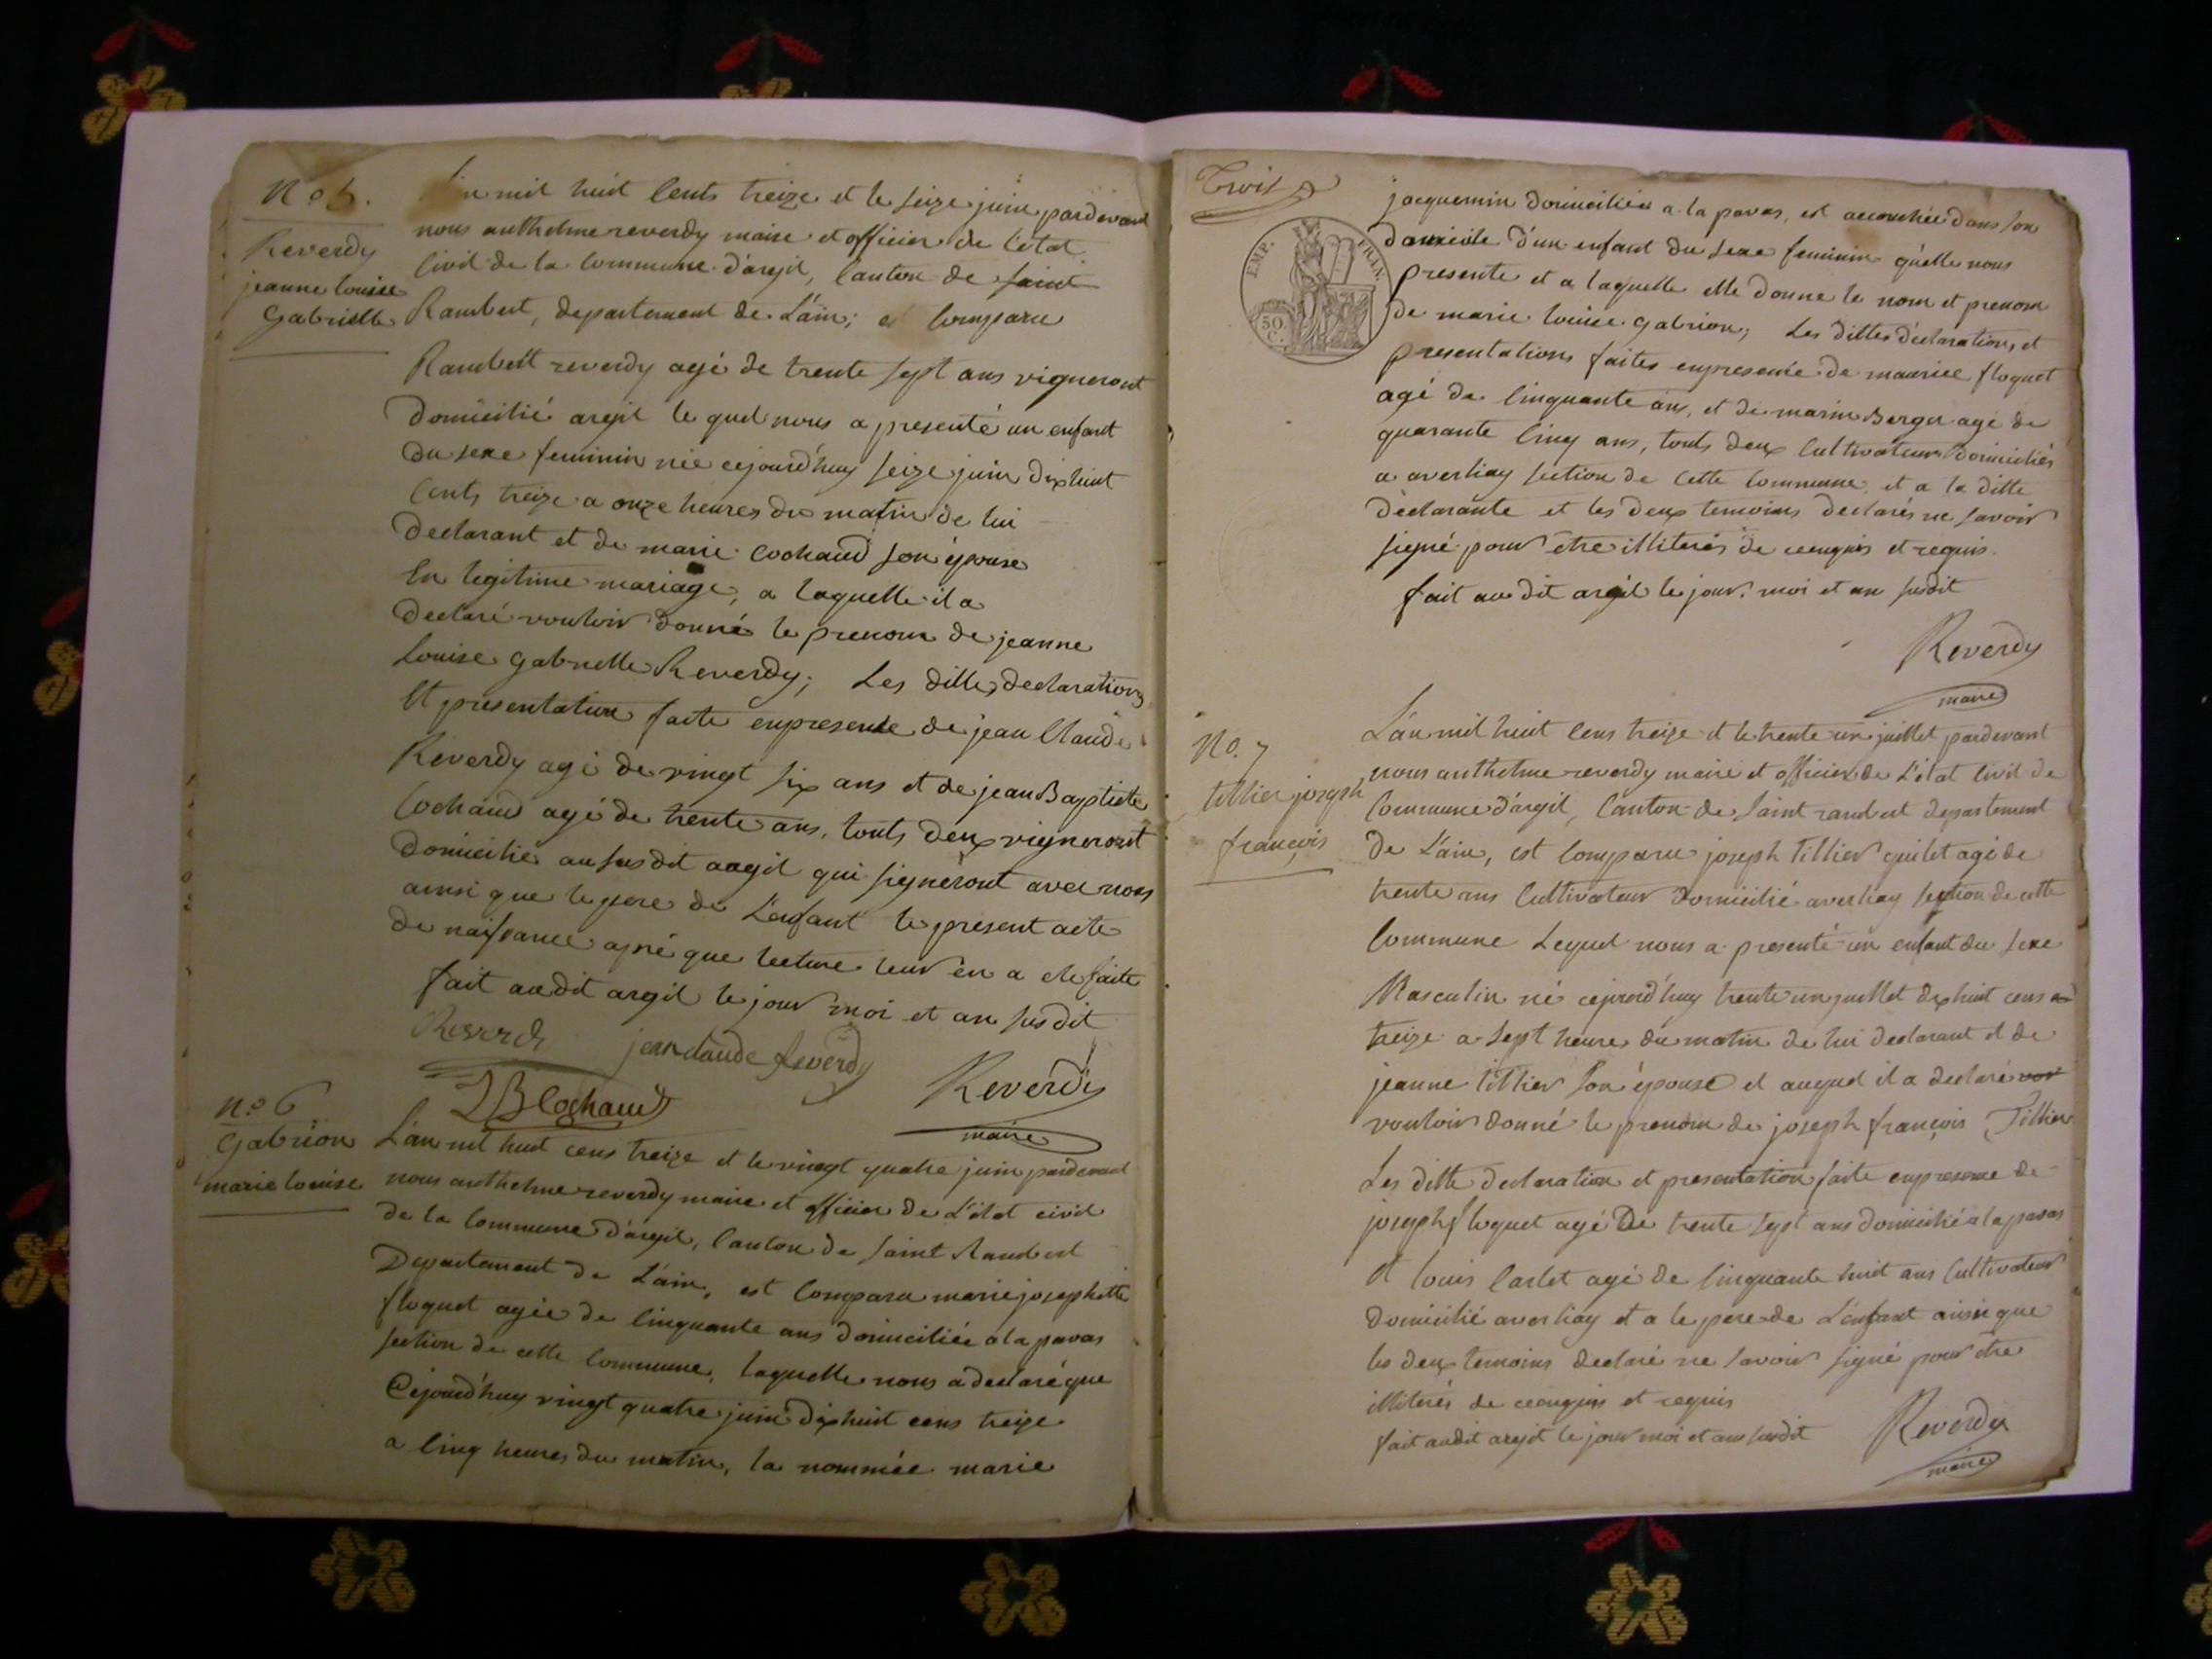 No 5.
Reverdy
jeanne louise
Gabrielle
L'an mil huit Cents treize et le seize juin pardevant
nous anthelme reverdy maire et officier de l'état
Civil de la Commune d'argil, Canton de saint
Rambert, departement de L'ain; est Comparu
Rambert reverdy agé de trente sept ans vigneront
domicilié argil le quel nous a presenté un enfant
du sexe feminin née cejourd'huy seize juin dixhuit
Cents treize a onze heures du matin de lui
declarant et de marie Cochaud son épouse
En legitime mariage, a laquelle il a
declaré vouloir donné le prenom de jeanne
Louise gabrielle Reverdy; Les dittes declarations
Et presentation faite enpresence de jean Claude
Reverdy agé de vingt six ans et de jean Baptiste
Cochaud agé de trente ans, touts deux vigneront
domicilié ausus dit argil qui signeront avec nous
ainsi que le pere de L'enfant le present acte
de naissance apré que lecture leur en a ete faite
fait audit argil le jour moi et an susdit
Reverdi jean claude Reverdy
JB Cochaud Reverdy
maire
no 6
Gabrion
marie louise
L'an mil huit cens treize et le vingt quatre juin pardevant
nous anthelme reverdy maire et officier de L'état civil
de la Commune d'argil, Canton de saint Rambert
Departement de L'ain, est Comparu marie josephette
floquet agée de Cinquante ans domiciliée a la pavas
section de cette Commune, laquelle nous a declaré que
Cejourd'huy vingt quatre juin dixhuit cens treize
a Cinq heures du matin, la nommée marie
Trois
EMP. FRAN.
50 C.
jacquemin domiciliée a la pavas, est accouchée dans son
domicile d'un enfant du sexe feminin qu'elle nous
presente et a laquelle elle donne le nom et prenom
de marie louise gabrion; Les dittes déclarations et
presentations faites enpresence de maurice floquet
agé de Cinquante ans, et de marin Berger agé de
quarante Cinq ans, touts deux Cultivateurs domiciliés
a averliay section de cette Commune et a la ditte
déclarante et les deux temoins declarés ne savoir
signé pour etre illiterés de ce enquis et requis.
fait au dit argil le jour, moi et an susdit
Reverdy
maire
No. 7
tillier joseph
françois
L'an mil huit Cens treize et le trente un juillet pardevant
nous anthelme reverdy maire et officier de L'état Civil de
Commune d'argil, Canton de saint rambert departement
de L'ain, est Comparu joseph Tillier quilet agé de
trente ans Cultivateur domicilié averliay section de cette
Commune Lequel nous a presenté un enfant du sexe
Masculin né cejourd'huy trente un juillet dixhuit cens
treize a sept heures du matin de lui declarant et de
jeanne tillier son épouse et auquel il a declaré
vouloir donné le prenom de joseph françois Tillier
Les ditte declaration et presentation faite enpresence de
joseph floquet agé De trente sept ans domicilié a la pavas
et louis Carlet agé de Cinquante huit ans Cultivateur
domicilié averliay et a le pere de L'enfant ainsi que
les deux temoins declaré ne savoir signé pour etre
illiterés de ce enquis et requis
fait audit argil le jour moi et an susdit
Reverdy
maire